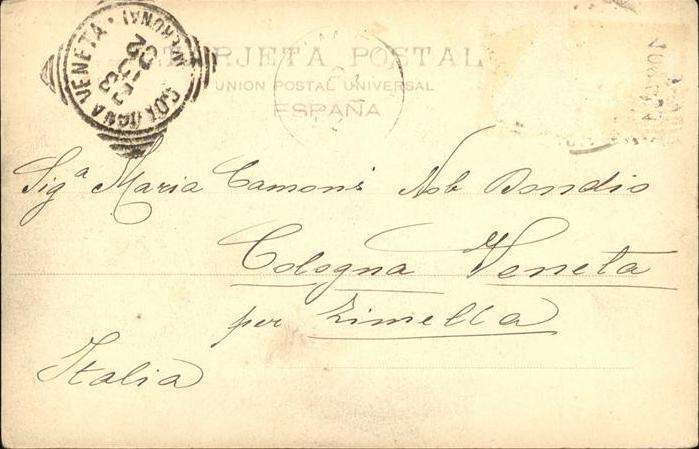 TARJETA POSTAL
UNION POSTAL UNIVERSAL
ESPAÑA
COLOGNA VENETA
Sigª Maria Camoni Nob Bondio
Cologna Veneta
per Zimella
Italia